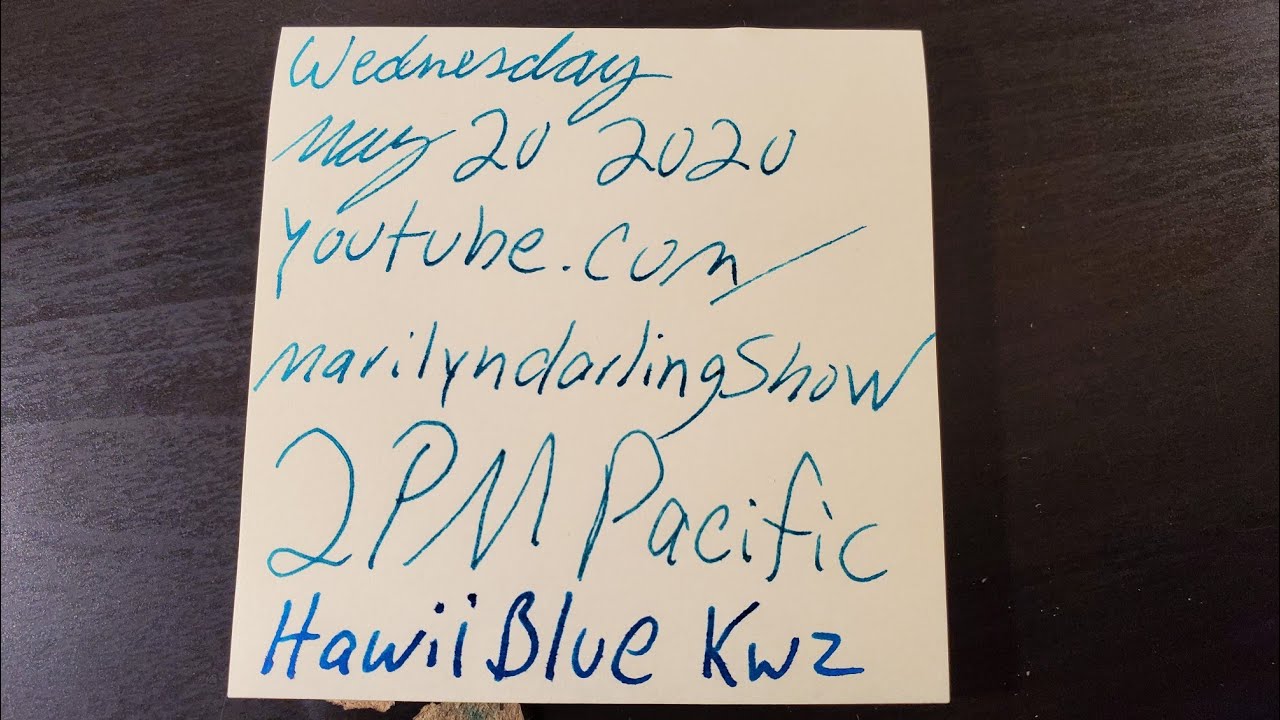 Wednesday
May 20 2020
youtube.com/
marilyndarlingShow
2PM Pacific
Hawii Blue KWZ